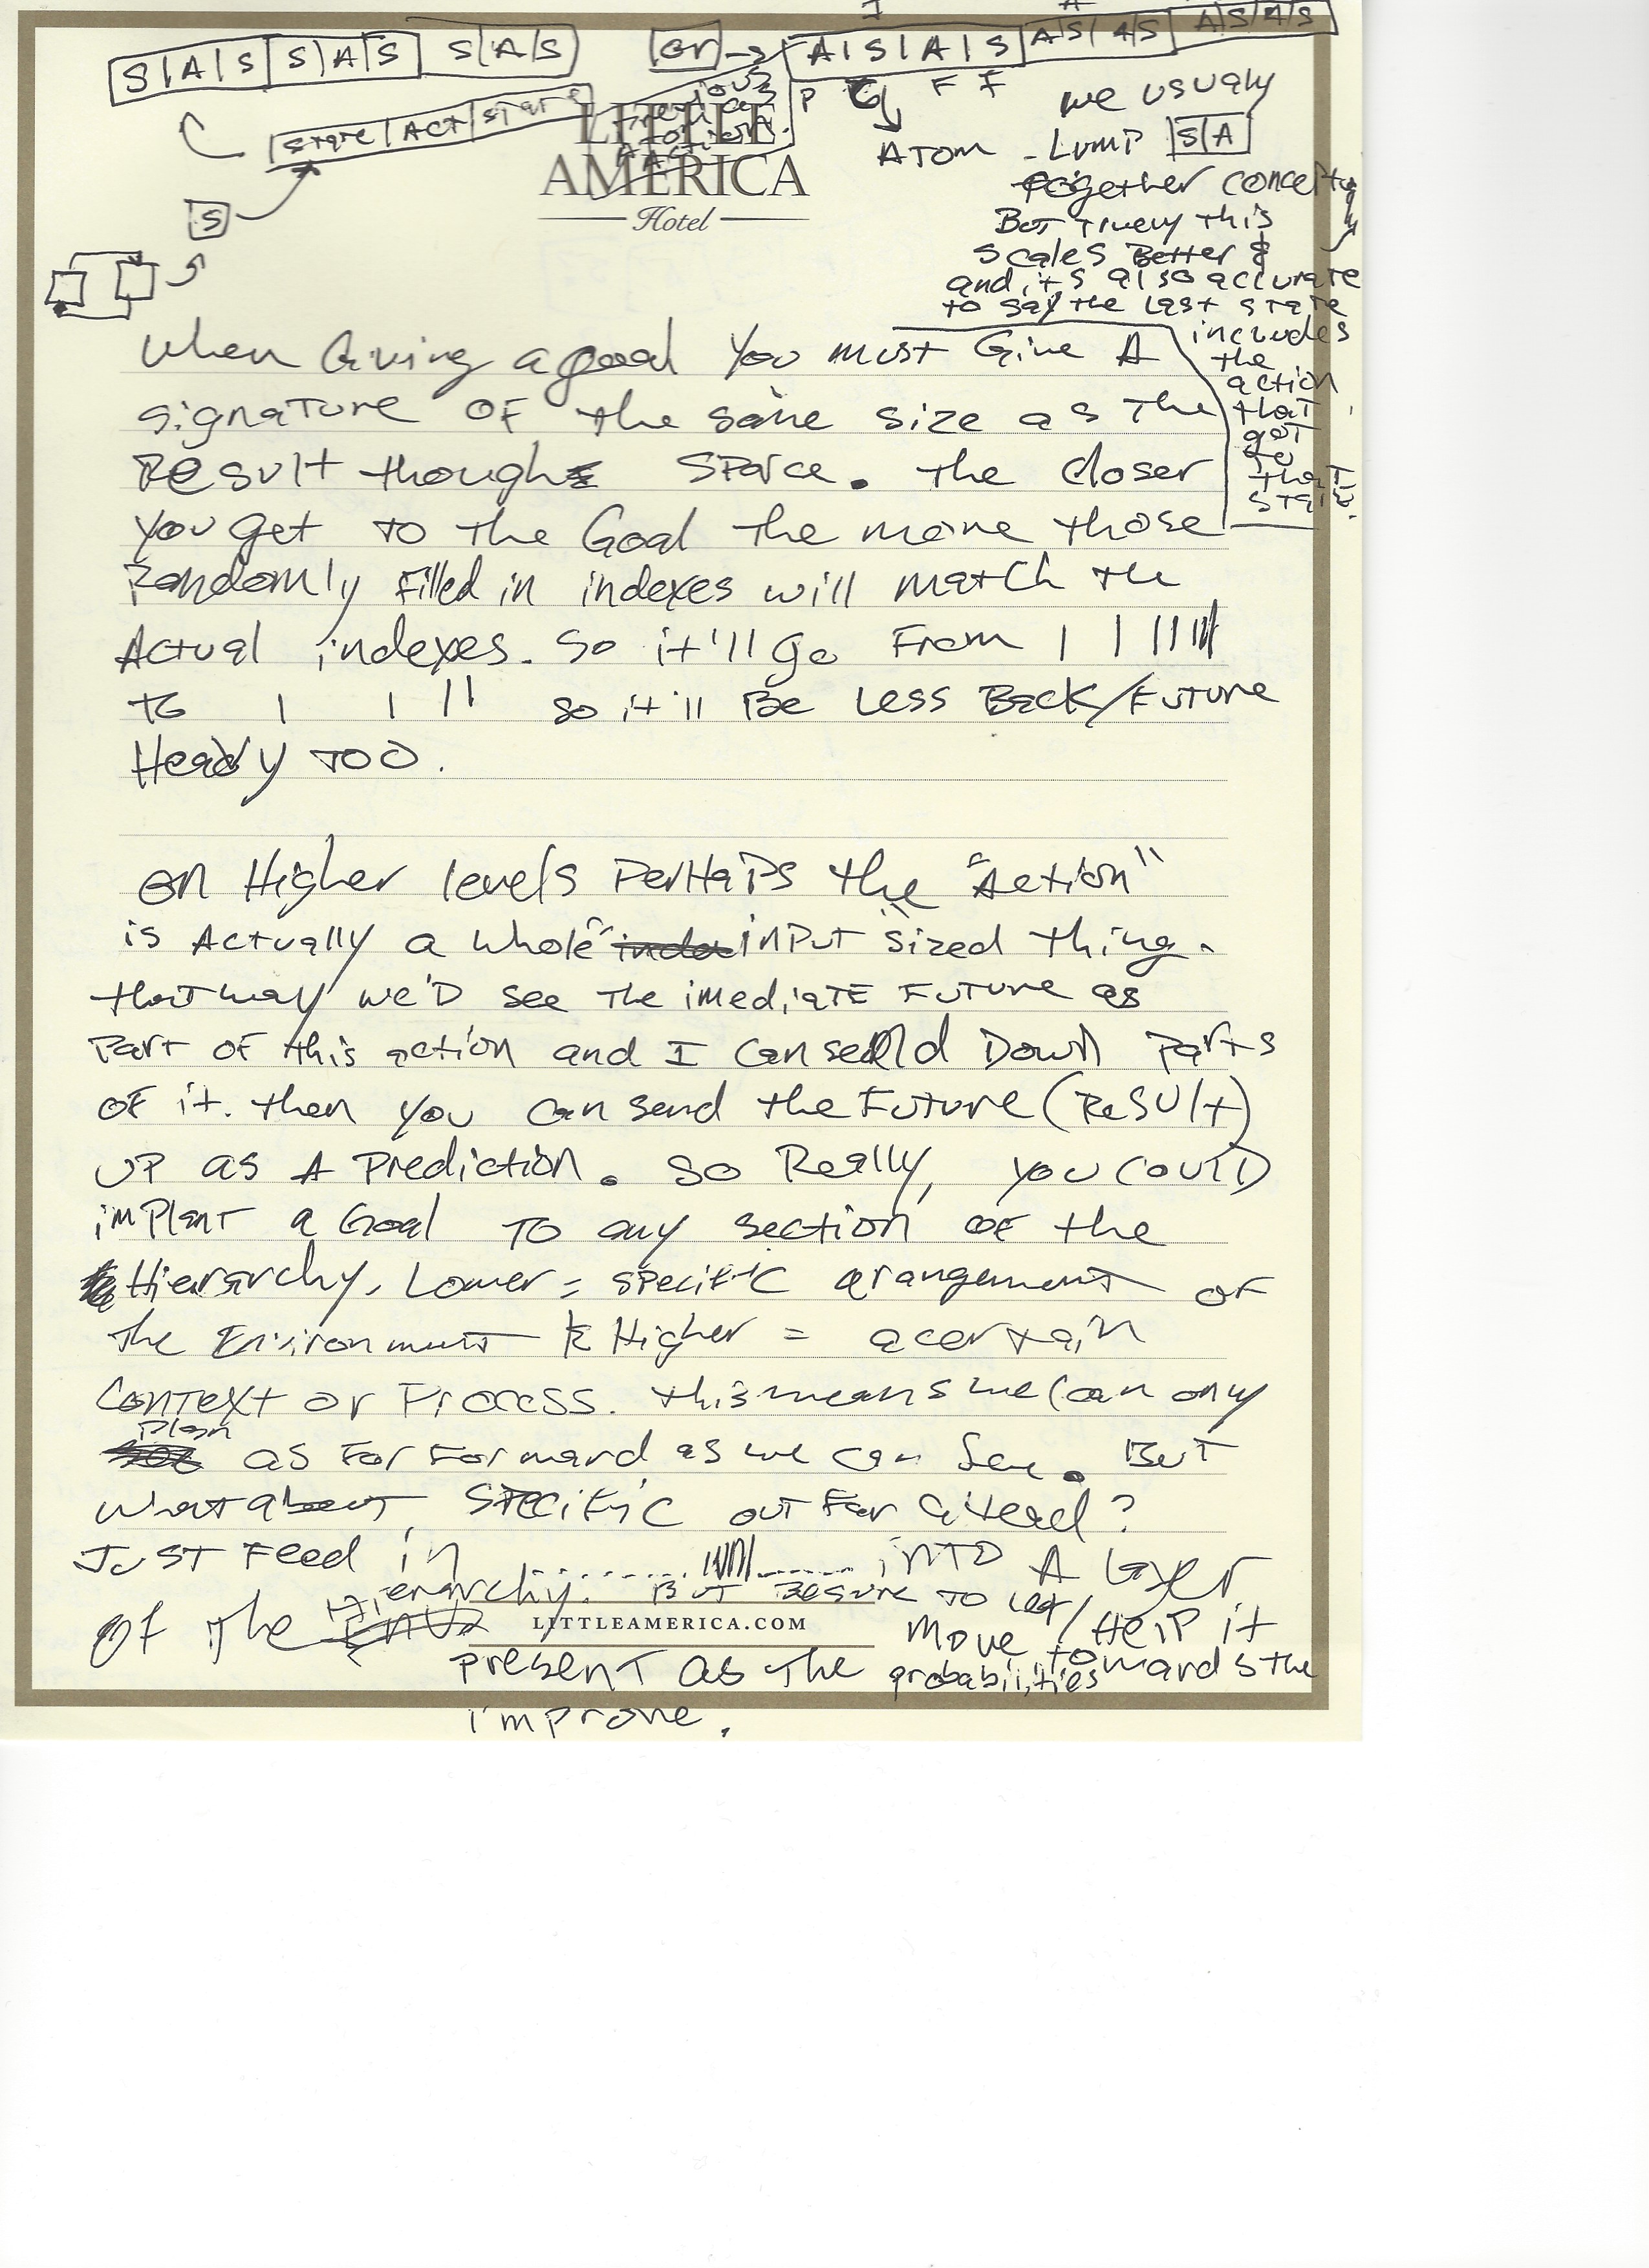 S|A|S S|A|S S|A|S
or → A|S|A|S A|S|A|S A|S|A|S
STATE|ACT|STATE
P F F
ATOM
S
LITTLE
AMERICA
Hotel
we usualy
Lump S|A
together
But truely this
scales Better &
and its also accurate
to say the last state
includes
the
action
that
got
to
that
state.
when Giving a goal you must Give A
signature OF the same size as The
Result though sparce. The closer
you get to the Goal The more those
Randomly filled in indexes will match the
Actual indexes. So it'll go From | | |||||
to | | || so it'll Be Less Back/Future
Heady too.
on Higher levels perhaps the "Action"
is Actually a whole "input" sized thing.
that way we'D see the imediate Future as
part of this action and I can send Down parts
of it. then you can send the Future (Result)
up as A Prediction. So Really, you could
implant a Goal to any section of the
Hierarchy. Lower = specific arangement of
the Environment & Higher = a certain
Context or Process. this means we can only
Plan as far forward as we can See. But
what about specific out far ahead?
Just Feed in ........|||||........ into A layer
of the Hierarchy. But Be sure to let/Help it
LITTLEAMERICA.COM
move towards the
present as the probabilities
improve.